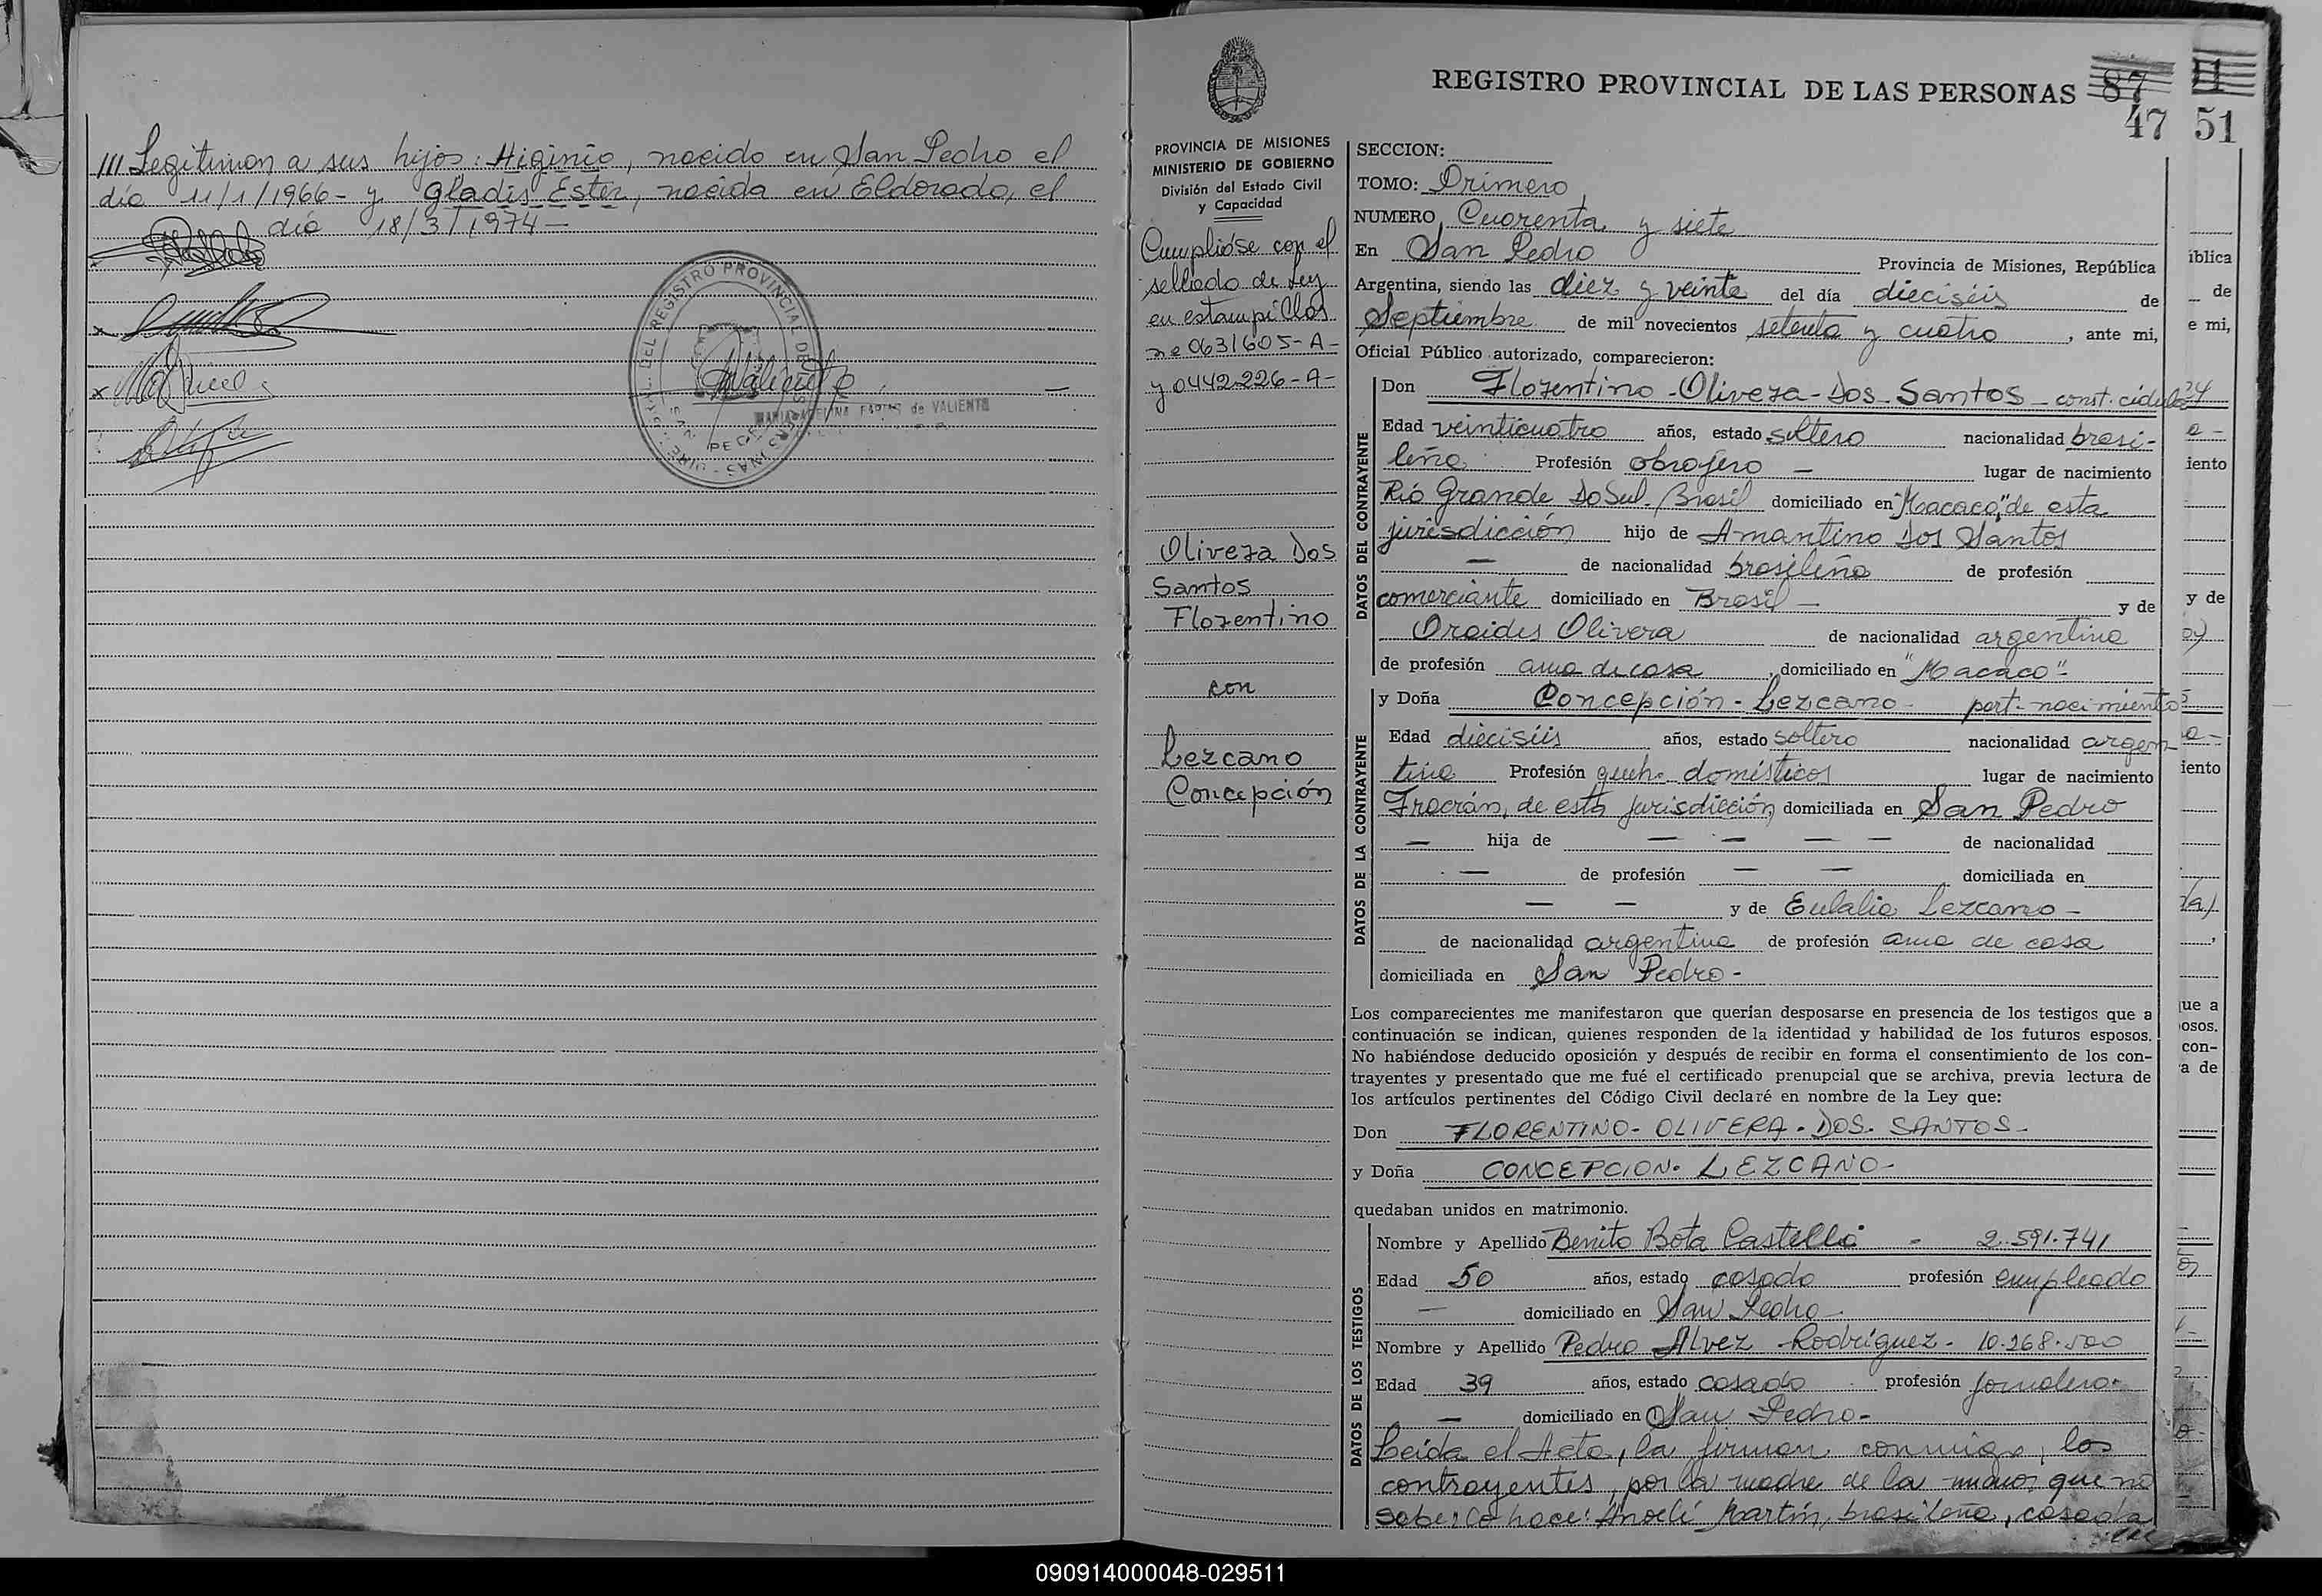 /// Legitiman a sus hijos: Higinio, nacido en San Pedro el
día 11/1/1966 - y Gladis Ester, nacida en Eldorado, el
día 18/3/1974 -
DEL REGISTRO PROVINCIAL DE
SAN PEDRO
MARIA ADELINA FARIAS de VALIENTE
REGISTRO PROVINCIAL DE LAS PERSONAS
87
47
1
51
PROVINCIA DE MISIONES
MINISTERIO DE GOBIERNO
División del Estado Civil
y Capacidad
Cumplióse con el
sellado de Ley
en estampillas
nº 0631605-A-
y 0442226-A-
Olivera Dos
Santos
Florentino
con
Lezcano
Concepción
SECCION:
TOMO: Primero
NUMERO Cuarenta y siete
En San Pedro Provincia de Misiones, República
Argentina, siendo las diez y veinte del día dieciséis de
Septiembre de mil novecientos setenta y cuatro, ante mi,
Oficial Público autorizado, comparecieron:
DATOS DEL CONTRAYENTE
Don Florentino - Olivera - Dos - Santos - const. cédula
Edad veinticuatro años, estado soltero nacionalidad brasi-
leña Profesión obrajero - lugar de nacimiento
Río Grande Do Sul, Brasil domiciliado en "Macaco", de esta
jurisdicción hijo de Amantino Dos Santos
- de nacionalidad brasileña de profesión
comerciante domiciliado en Brasil - y de
Oraides Olivera de nacionalidad argentina
de profesión ama de casa domiciliado en "Macaco"-
DATOS DE LA CONTRAYENTE
y Doña Concepción - Lezcano - part. nacimiento
Edad dieciséis años, estado soltera nacionalidad argen-
tina Profesión queh. domésticos lugar de nacimiento
Fracrán, de esta jurisdicción, domiciliada en San Pedro
- hija de - - - - de nacionalidad
- de profesión - - domiciliada en
- - y de Eulalia Lezcano -
de nacionalidad argentina de profesión ama de casa
domiciliada en San Pedro -
Los comparecientes me manifestaron que querían desposarse en presencia de los testigos que a
continuación se indican, quienes responden de la identidad y habilidad de los futuros esposos.
No habiéndose deducido oposición y después de recibir en forma el consentimiento de los con-
trayentes y presentado que me fué el certificado prenupcial que se archiva, previa lectura de
los artículos pertinentes del Código Civil declaré en nombre de la Ley que:
Don FLORENTINO - OLIVERA - DOS - SANTOS -
y Doña CONCEPCION - LEZCANO -
quedaban unidos en matrimonio.
DATOS DE LOS TESTIGOS
Nombre y Apellido Benito Bota Castelló - 2.591.741
Edad 50 años, estado casado profesión empleado
- domiciliado en San Pedro -
Nombre y Apellido Pedro Alvez Rodriguez - 10.268.500
Edad 39 años, estado casado profesión jornalero -
- domiciliado en San Pedro -
Leída el Acta, la firman conmigo, los
contrayentes, por la madre de la menor, que no
sabe, lo hace: Martín, brasileña, casada
///
íblica
de
e mi,
iento
y de
iento
que a
posos.
con-
a de
090914000048-029511